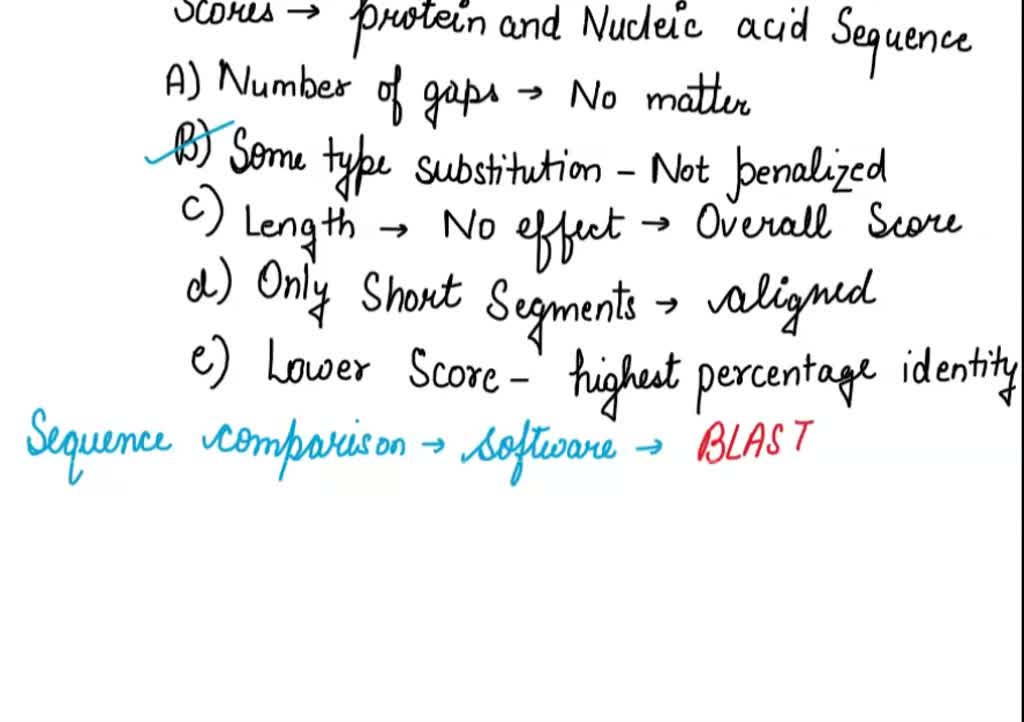 Scores → protein and Nucleic acid Sequence
A) Number of gaps → No matter
B) Some type substitution - Not penalized
c) Length → No effect → Overall Score
d) Only Short Segments → aligned
e) Lower Score - highest percentage identity
Sequence comparison → software → BLAST